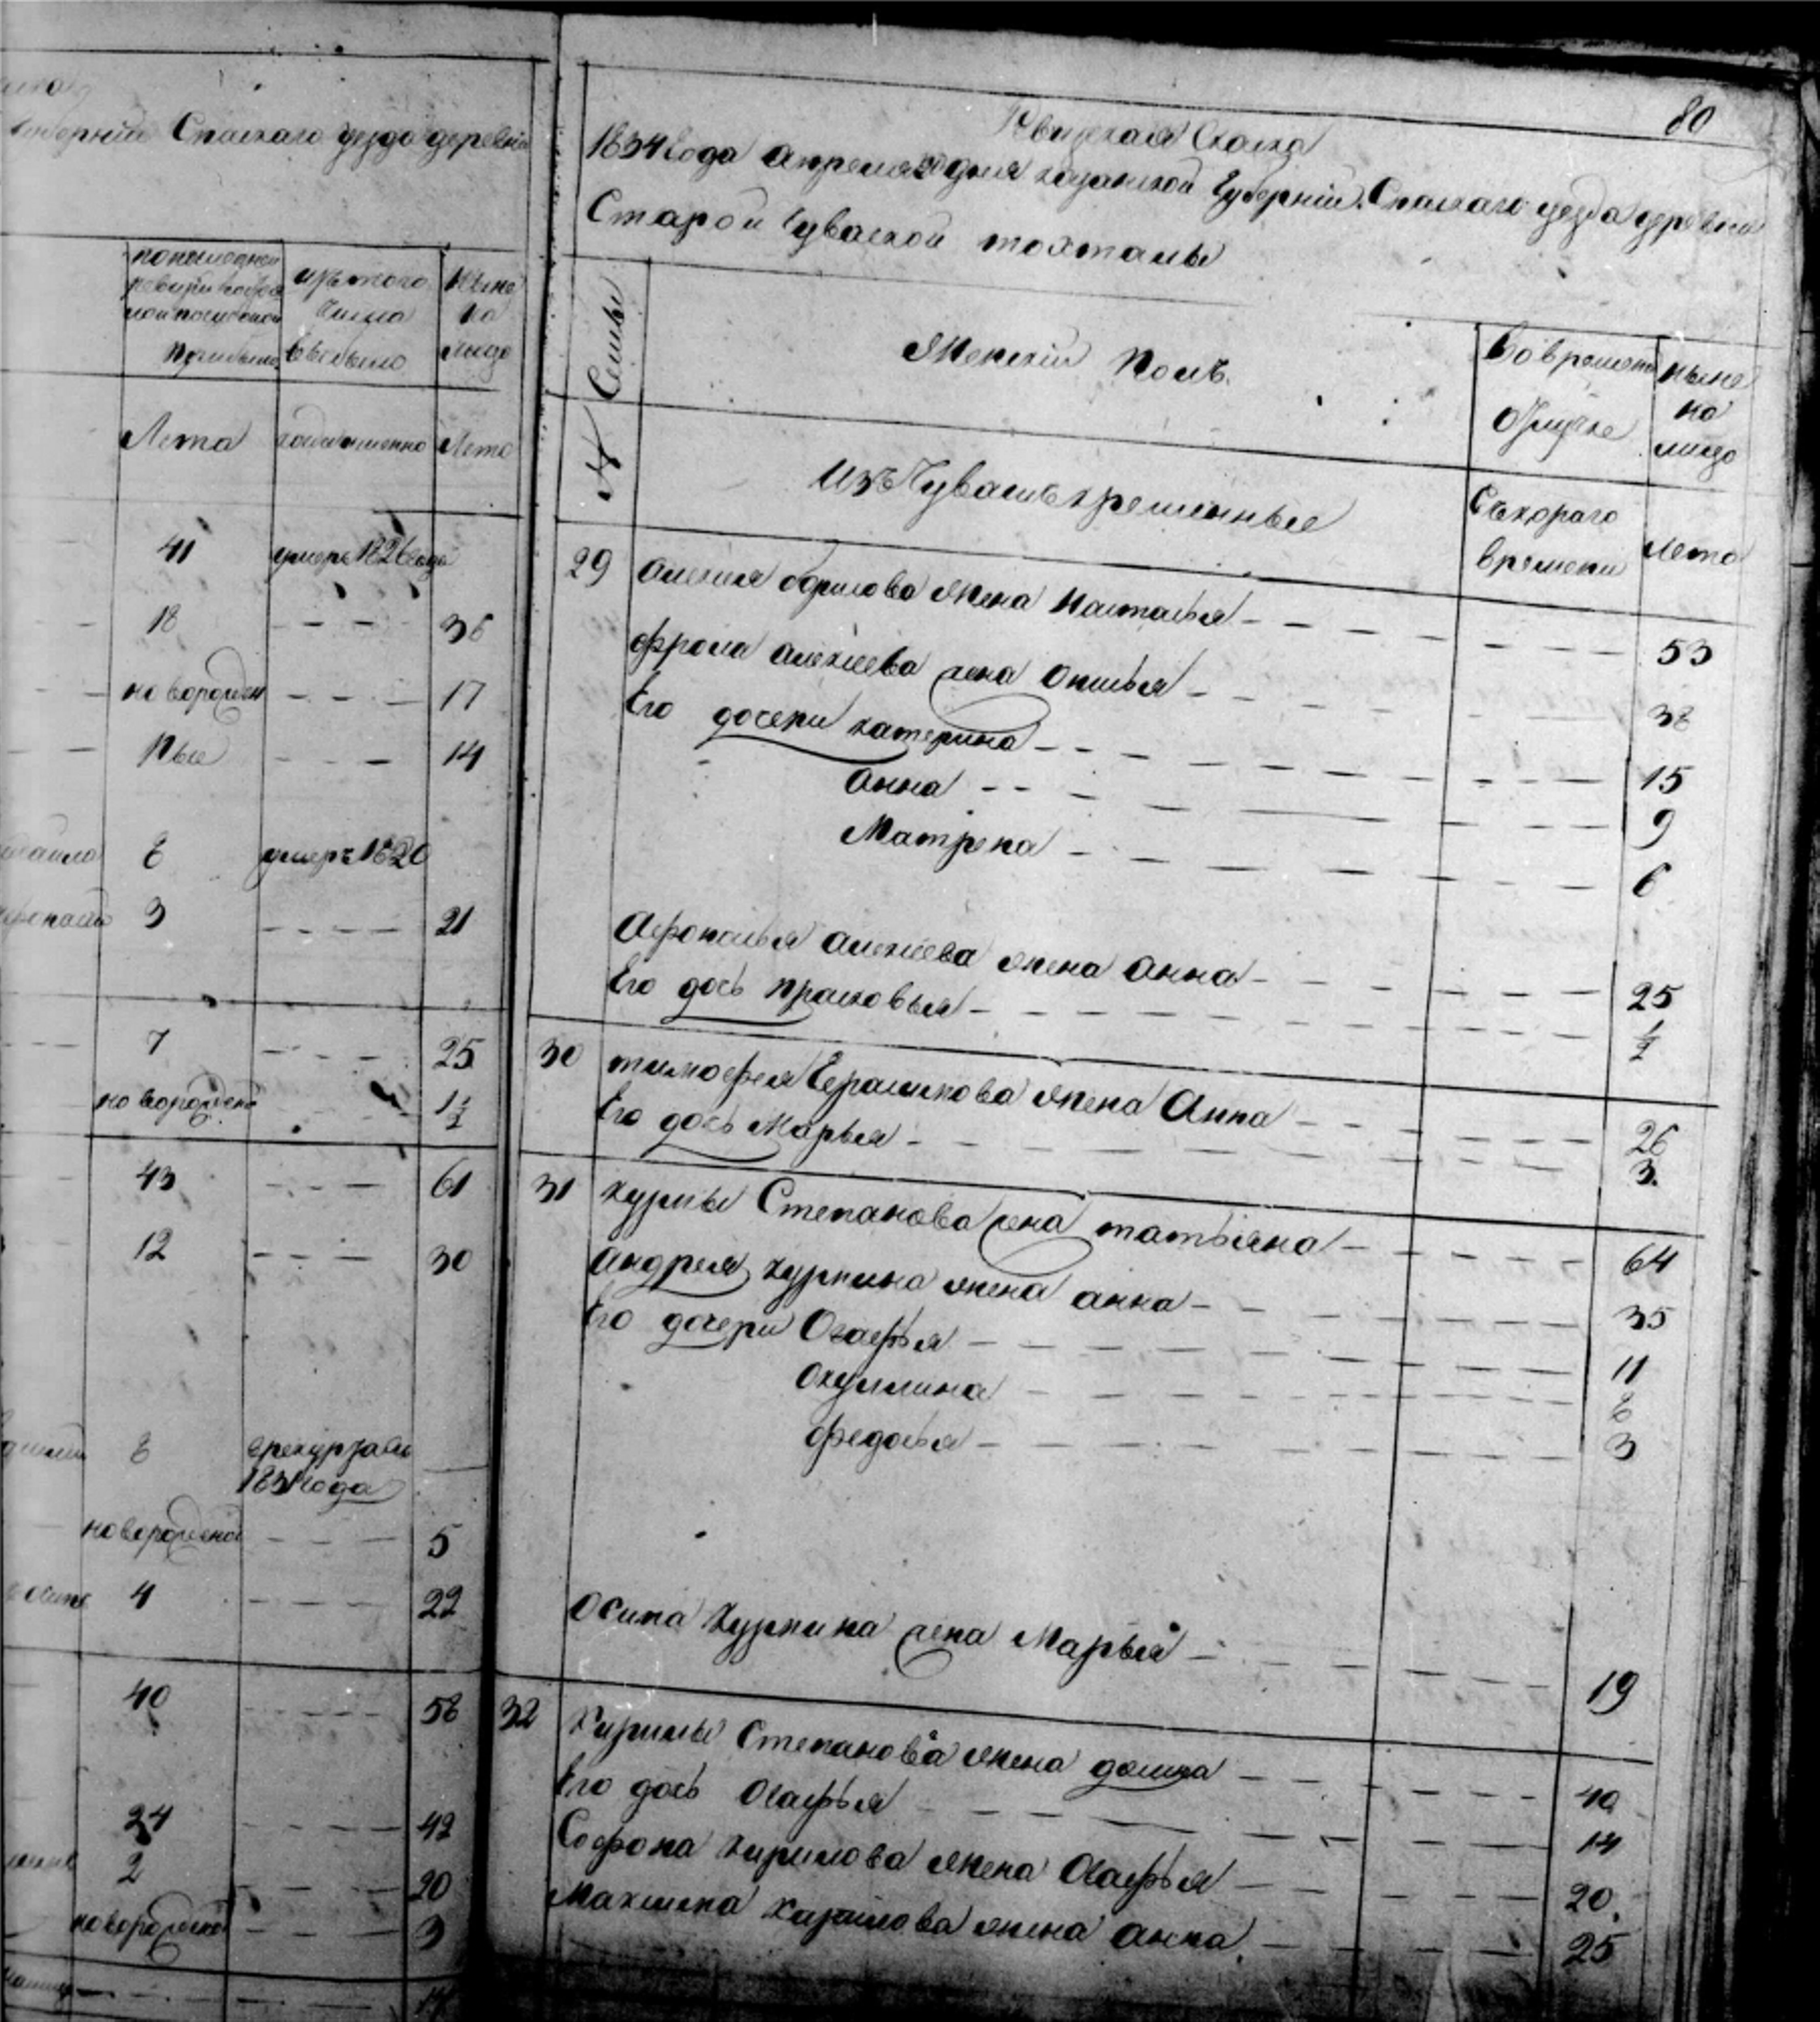 губернии Спаского уезда деревни
попоследней
ревизии состоя
ло и после оной
прибыло
изътого
числа
выбыло
ныне
на
лицо
Лета
когда именно
Лета
41 умеръ 1826 года
18 36
новорожден 17
ные 14
8 умеръ 1820
3 21
7 25
новорожденой 1½
43 61
12 30
8 врекруты
183 года
новорожденой 5
4 22
40 58
24 42
2 20
новорожденой 3
80
Ревизская Сказка
1834 года апреля дня казанской Губернии Спаского уезда деревни
Старой чуваской тохталы
№ Семьи
Женский Полъ
Во времен
отлучке
ныне
на
лицо
Изъ Чувашъ крещенные
Съкораго
времени
Лета
29 Алексея Гаврилова жена Настасья 53
Фрола алексеева жена Онисья 38
Его дочери катерина 15
Анна 9
Матрена 6
Афонасья алексеева жена Анна 25
Его дочь прасковья ½
30 тимофея Герасимова жена Анна 26
Его дочь Марья 3
31 курмы Степанова жена татьяна 64
Андрея курмина жена анна 35
Его дочери Огафья 11
Окулина 8
Федосья 3
Осипа курмина жена Марья 19
32 Кирилы Степанова жена домна 40
Его дочь Огафья 14
Софрона кирилова жена Огафья 20
Максима кирилова жена анна 25